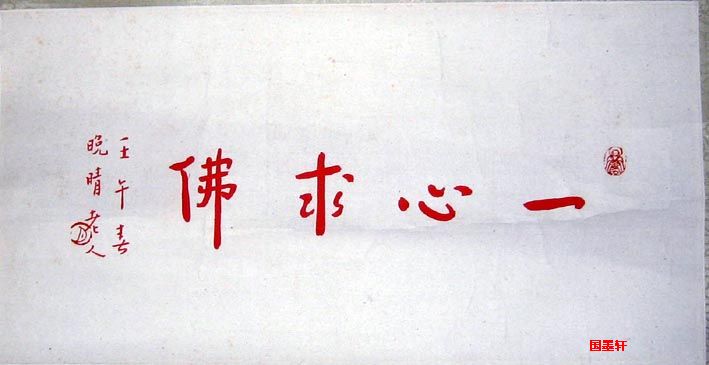 一心求佛
壬午春
晚晴老人
国墨轩